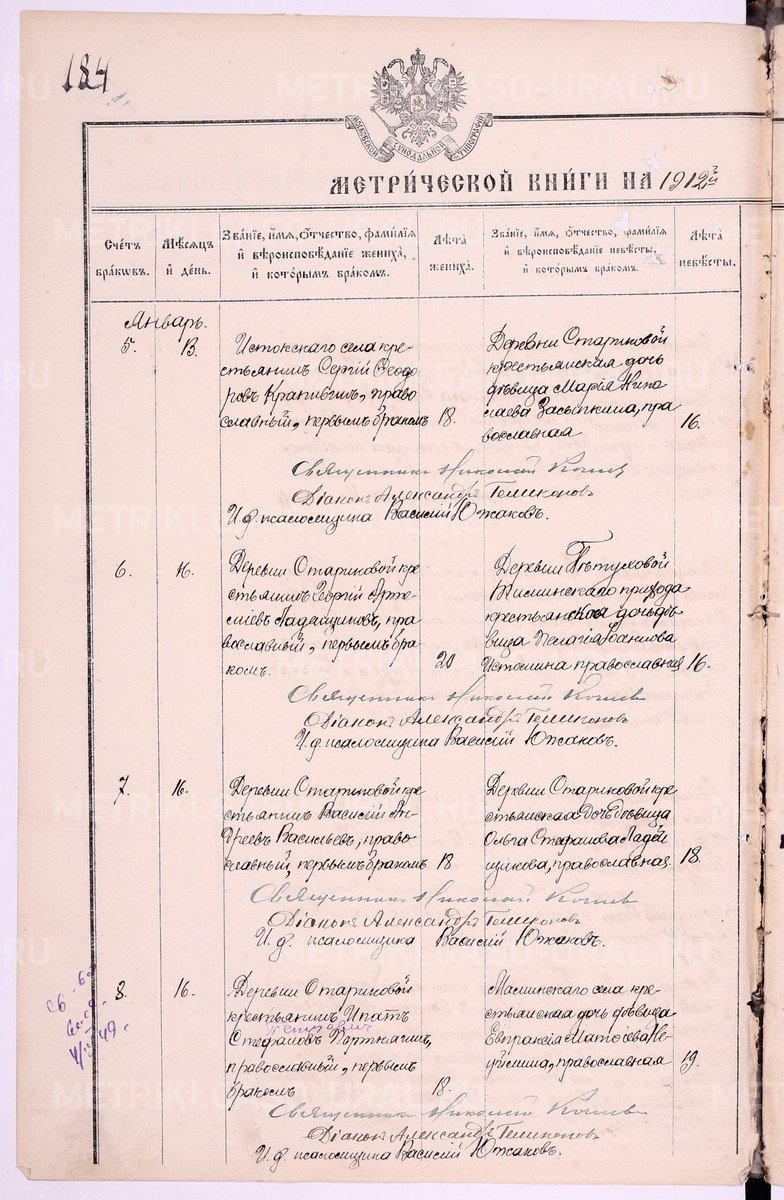 184
МОСКОВСКОЙ СѴНОДАЛЬНОЙ ТИПОГРАФІИ
МЕТРИ́ЧЕСКОЙ КНИ́ГИ НА 1912й
Сче́тъ бра́кѡвъ.
Мѣ́сѧцъ и҆ де́нь.
Зва́нїе, и҆́мѧ, ѻ҆́тчество, фами́лїѧ и҆ вѣроисповѣ́данїе жениха̀, и҆ кото́рымъ бра́комъ.
Лѣ́та жениха̀.
Зва́нїе, и҆́мѧ, ѻ҆́тчество, фами́лїѧ и҆ вѣроисповѣ́данїе невѣ́сты, и҆ кото́рымъ бра́комъ.
Лѣ́та невѣ́сты.
Январь.
5. 13.
Истокскаго села кре-
стьянинъ Сергій Ѳеодо
ровъ Крапивинъ, право
славный, первымъ бракомъ 18.
Деревни Стариковой
крестьянская дочь
дѣвица Марія Нико
лаева Засыпкина, пра
вославная 16.
Священникъ Николай
Діаконъ Александръ
И.д. псаломщика Василій Южаковъ.
6. 16.
Деревни Стариковой кре
стьянинъ Георгій Арте
міевъ Ладейщиковъ, пра
вославный, первымъ бра
комъ. 20
Деревни Пѣтуховой
прихода
крестьянская дочь дѣ
вица Пелагія
Истомина православная 16.
Священникъ Николай
Діаконъ Александръ
И.д. псаломщика Василій Южаковъ.
7. 16.
Деревни Стариковой кре
стьянинъ Василій Ан-
дреевъ Васильевъ, право-
славный, первымъ бракомъ 18
Деревни Стариковой кре
стьянская дочь дѣвица
Ольга Стефанова Ладей
щикова, православная 18.
Священникъ Николай
Діаконъ Александръ
И.д. псаломщика Василій Южаковъ.
8. 16.
Деревни Стариковой
крестьянинъ Ипатъ
Стефановъ Портнягинъ,
православный, первымъ
бракомъ 18.
Маминскаго села кре-
стьянская дочь дѣвица
Евпраксія
православная 19.
Священникъ Николай
Діаконъ Александръ
И.д. псаломщика Василій Южаковъ.